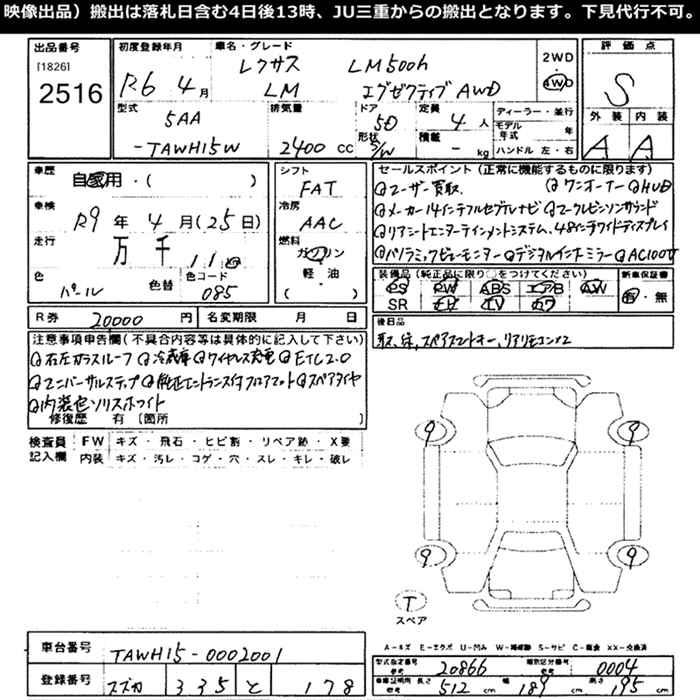 映像出品）搬出は落札日含む4日後13時、JU三重からの搬出となります。下見代行不可。
出品番号
[1826]
2516
初度登録年月
R6 4月
車名・グレード
レクサス LM500h
LM エグゼクティブ AWD
2WD
4WD
評価点
S
外装 内装
A A
型式
5AA
-TAWH15W
排気量
2400 cc
ドア
5D
形状
S/W
定員
4 人
積載
- kg
ディーラー・並行
モデル年式 年
ハンドル 左・右
車歴
自家用・( )
車検
R9 年 4 月 (25 日)
走行
万 千 11
色
パール
色替
色コード
085
シフト
FAT
冷房
AAC
燃料
ガソリン
軽・油
( )
セールスポイント (正常に機能するものに限ります)
ユーザー買取 ワンオーナー HUD
メーカー14インチフルセグナビ マークレビンソンサウンド
リアシートエンターテインメントシステム、48インチワイドディスプレイ
パノラミックビューモニター デジタルインナーミラー AC100V
装備品 (純正品に限り○をつけてください)
PS PW ABS エアB AW
SR
新車保証書
有・無
R券 20000 円
名変期限 月 日
後日品
取、保、スペアスマートキー、リアリモコン×2
注意事項申告欄 (不具合内容等は具体的に記入して下さい)
右左ガラスルーフ 冷蔵庫 ワイヤレス充電 ETC2.0
ユニバーサルステップ 純正エントランス付フロアマット スペアタイヤ
内装色ソリスホワイト
修復歴 有 [箇所 ]
検査員記入欄
FW キズ・飛石・ヒビ割・リペア跡・X要
内装 キズ・汚レ・コゲ・穴・スレ・キレ・破レ
9 9
9 9
T
スペア
車台番号 TAWH15-0002001
登録番号 スズカ 335 と 178
型式指定番号 20866
類別区分番号 0004
長さ 512 cm 幅 189 cm 高さ 195 cm